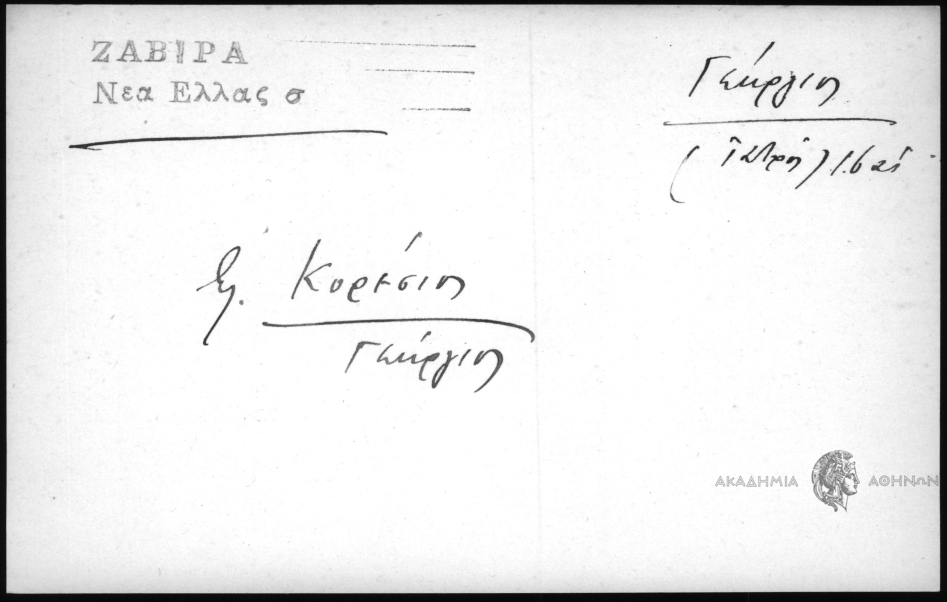 ΖΑΒΙΡΑ
Νεα Ελλας σ
Γεώργιος
Κορέσιος
Γεώργιος
ΑΚΑΔΗΜΙΑ ΑΘΗΝΩΝ